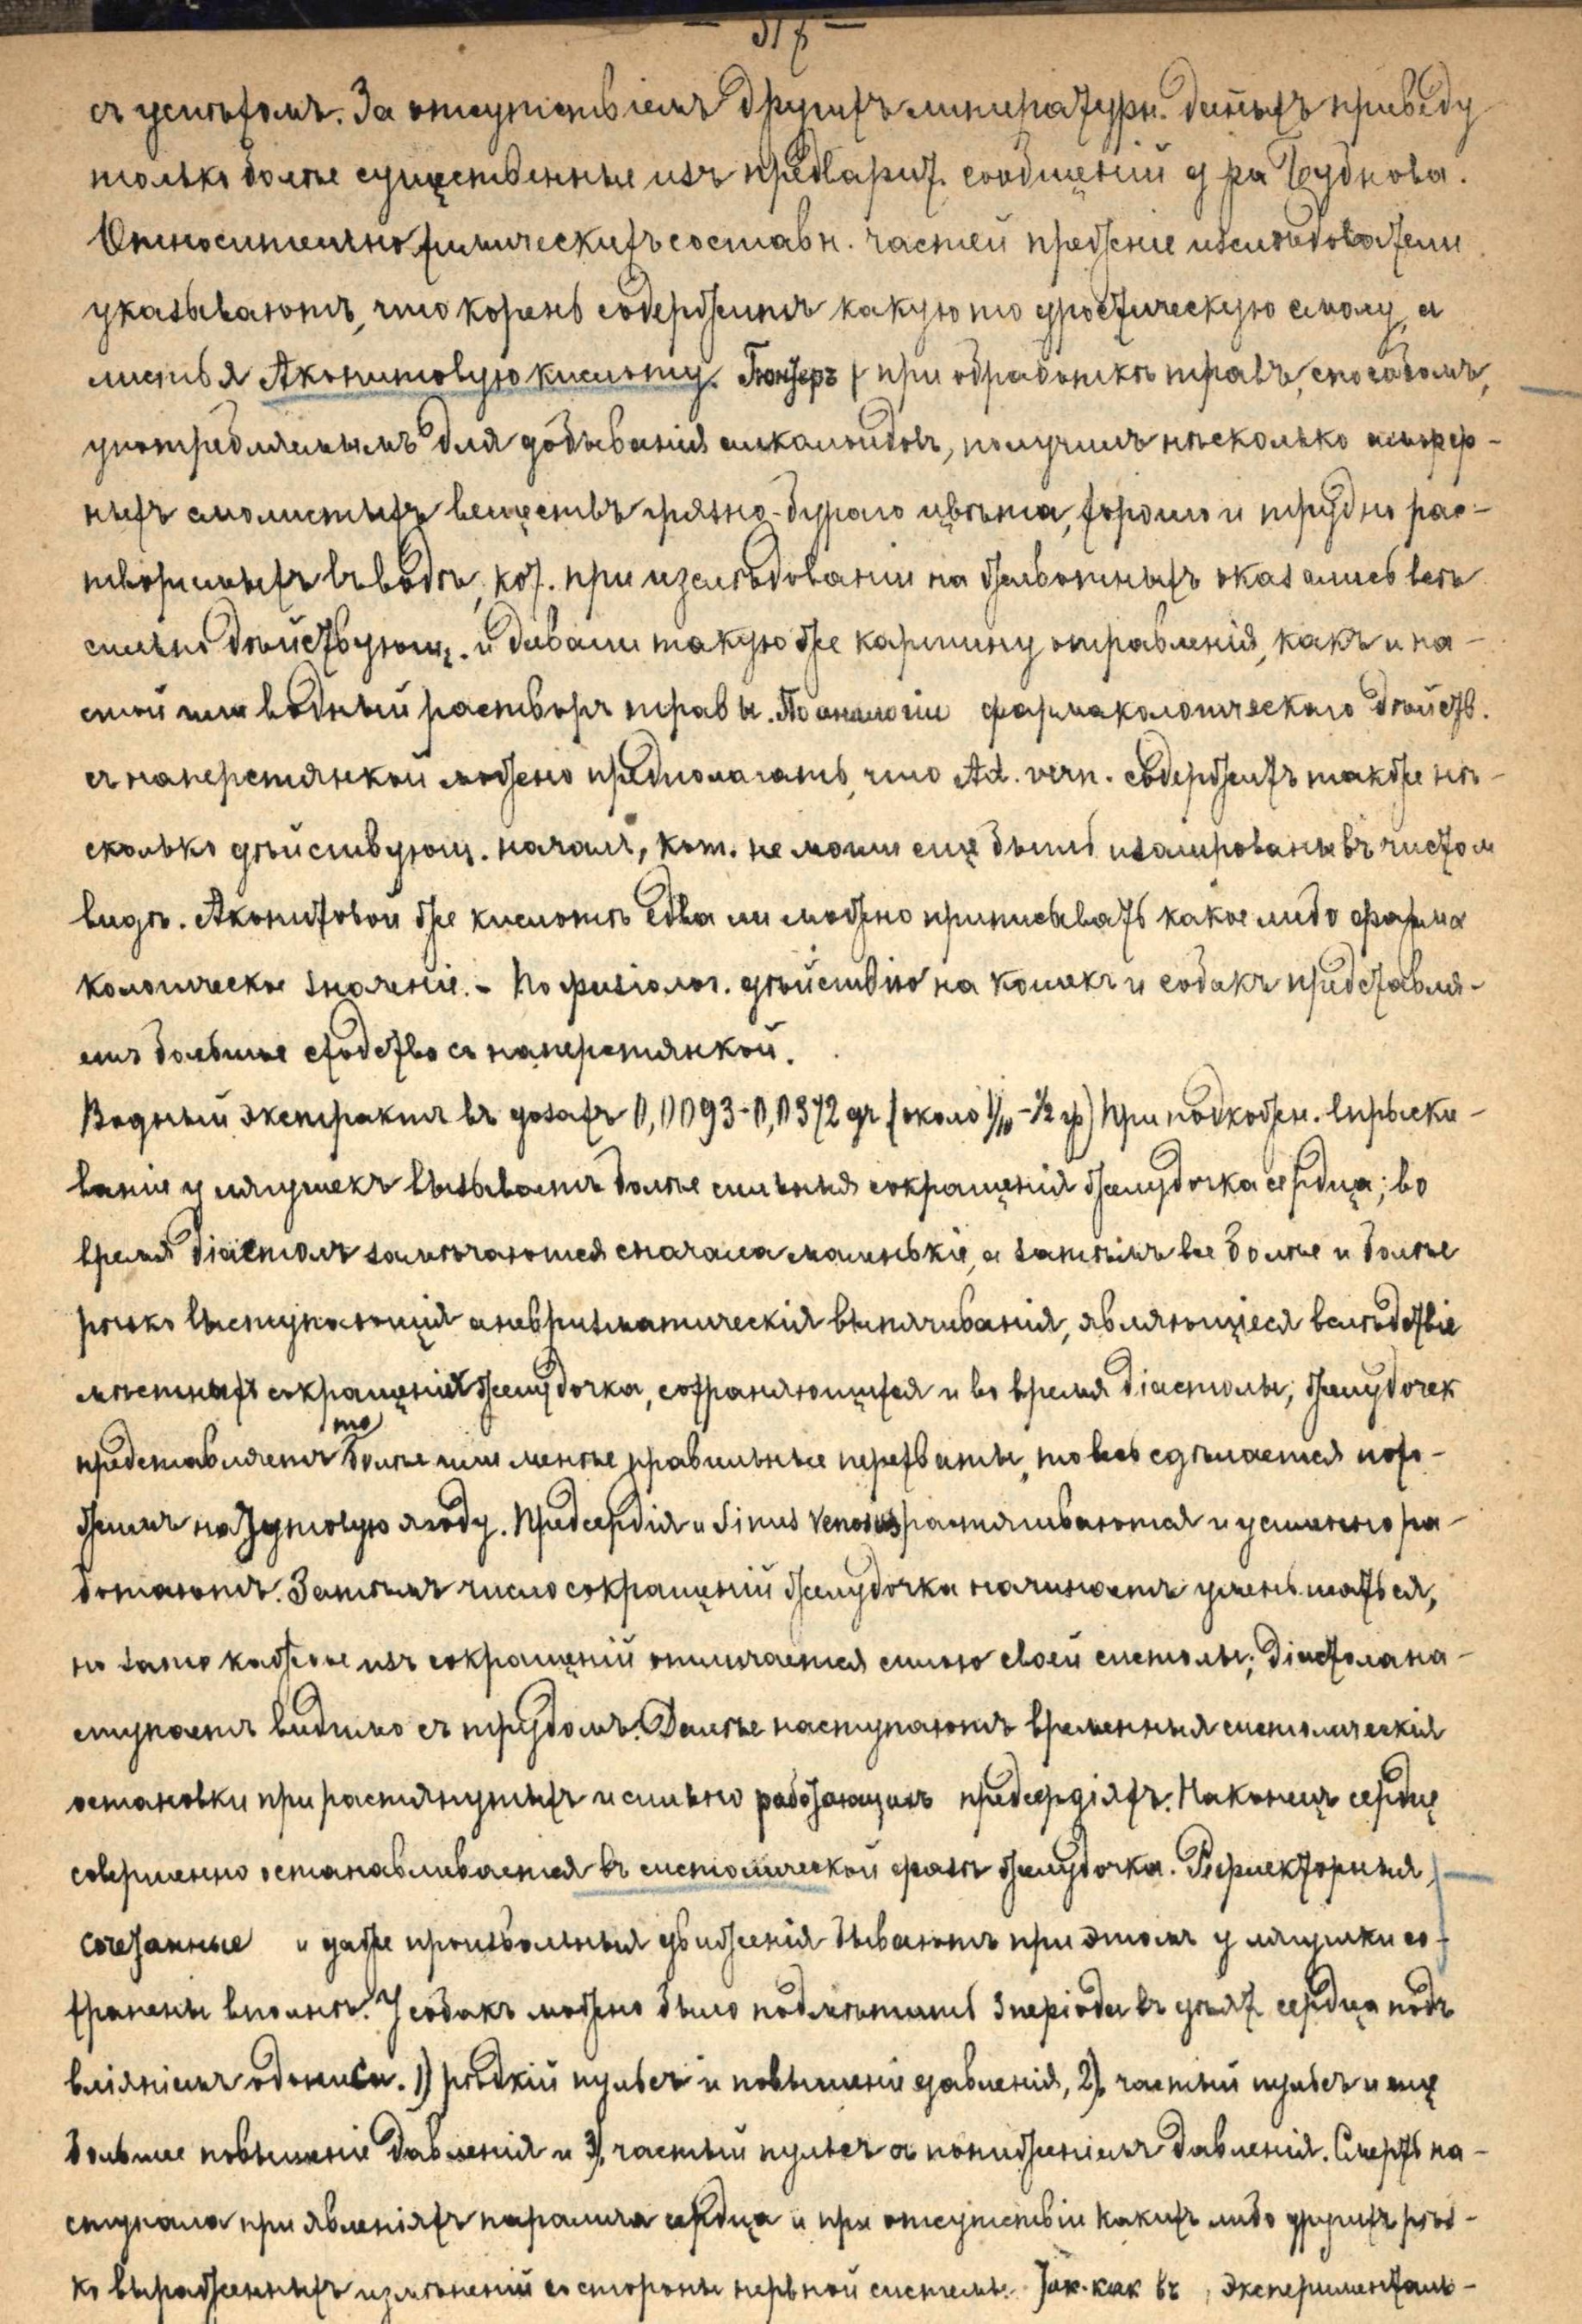 — 317 —
съ успѣхомъ. За отсутствіемъ другихъ литературн. данныхъ приведу
только болѣе существенные изъ предварит. сообщеній д-ра Бубнова.
Относительно химическихъ составн. частей прежніе изслѣдователи
указываютъ, что корень содержитъ какую то дростическую смолу, а
листья Аконитовую кислоту. Гюнзеръ при обработкѣ травъ, способомъ,
употребляемымъ для добыванія алкалоидовъ, получилъ нѣсколько аморф-
ныхъ смолистыхъ веществъ грязно-бураго цвѣта, хорошо и трудно рас-
творимыхъ въ водѣ, кот. при изслѣдованіи на животныхъ оказались всѣ
сильно дѣйствующ. и давали такую же картину отравленія, какъ и на-
стой или водный растворъ травы. По аналогіи фармакологическаго дѣйств.
съ наперстянкой можно предполагать, что Ad. vern. содержитъ также нѣ-
сколько дѣйствующ. началъ, кот. не могли еще быть изолированы въ чистом
видѣ. Аконитовой же кислотѣ едва ли можно приписывать какое либо фарма
кологическое значеніе. - По физіолог. дѣйствію на кошекъ и собакъ представля-
етъ большое сходство съ наперстянкой.
Водный экстрактъ въ дозахъ 0,0093-0,0372 gr. (около 1/10 - 1/2 гр) При подкожн. впрыски-
ваніи у лягушекъ вызываетъ болѣе сильныя сокращенія желудочка сердца; во
время діастолъ замѣчаются сначала маленькіе, а затѣмъ все болѣе и болѣе
рѣзко выступающія аневризматическія выпячиванія, являющіеся вслѣдствіе
мѣстныхъ сокращеній желудочка, сохраняющихся и во время діастолы; желудочек
представляетъ то болѣе или менѣе правильные перехваты, то весь сдѣлается похо-
жимъ на тутовую ягоду. Предсердія и Sinus venosus растягиваются и усиленно ра-
ботаютъ. Затѣмъ число сокращеній желудочка начинаетъ уменьшаться,
но зато каждое изъ сокращеній отличается силою своей систолы; діастола на-
ступаетъ видимо съ трудомъ. Далѣе наступаютъ временныя систолическія
остановки при растянутыхъ и сильно работающихъ предсердіяхъ. Наконецъ сердце
совершенно останавливается въ систолической фазѣ желудочка. Рефлекторныя,
сочетанные и даже произвольныя движенія бываютъ при этомъ у лягушки со-
хранены вполнѣ. У собакъ можно было подмѣтить 3 періода въ дѣят. сердца подъ
вліяніемъ адониса. 1) рѣдкій пульсъ и повышеніе давленія, 2), частый пульсъ и еще
большее повышеніе давленія и 3), частый пульсъ съ пониженіемъ давленія. Смерть на-
ступала при явленіяхъ паралича сердца и при отсутствіи какихъ либо другихъ рѣз-
ко выраженныхъ измѣненій со стороны нервной системы. Так. как въ эксперименталь-